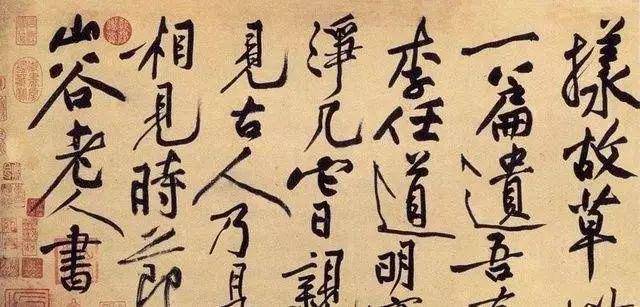 樣故草
一篇遺吾
李任道明
淨几它日親
見古人乃是
相見時節
山谷老人書